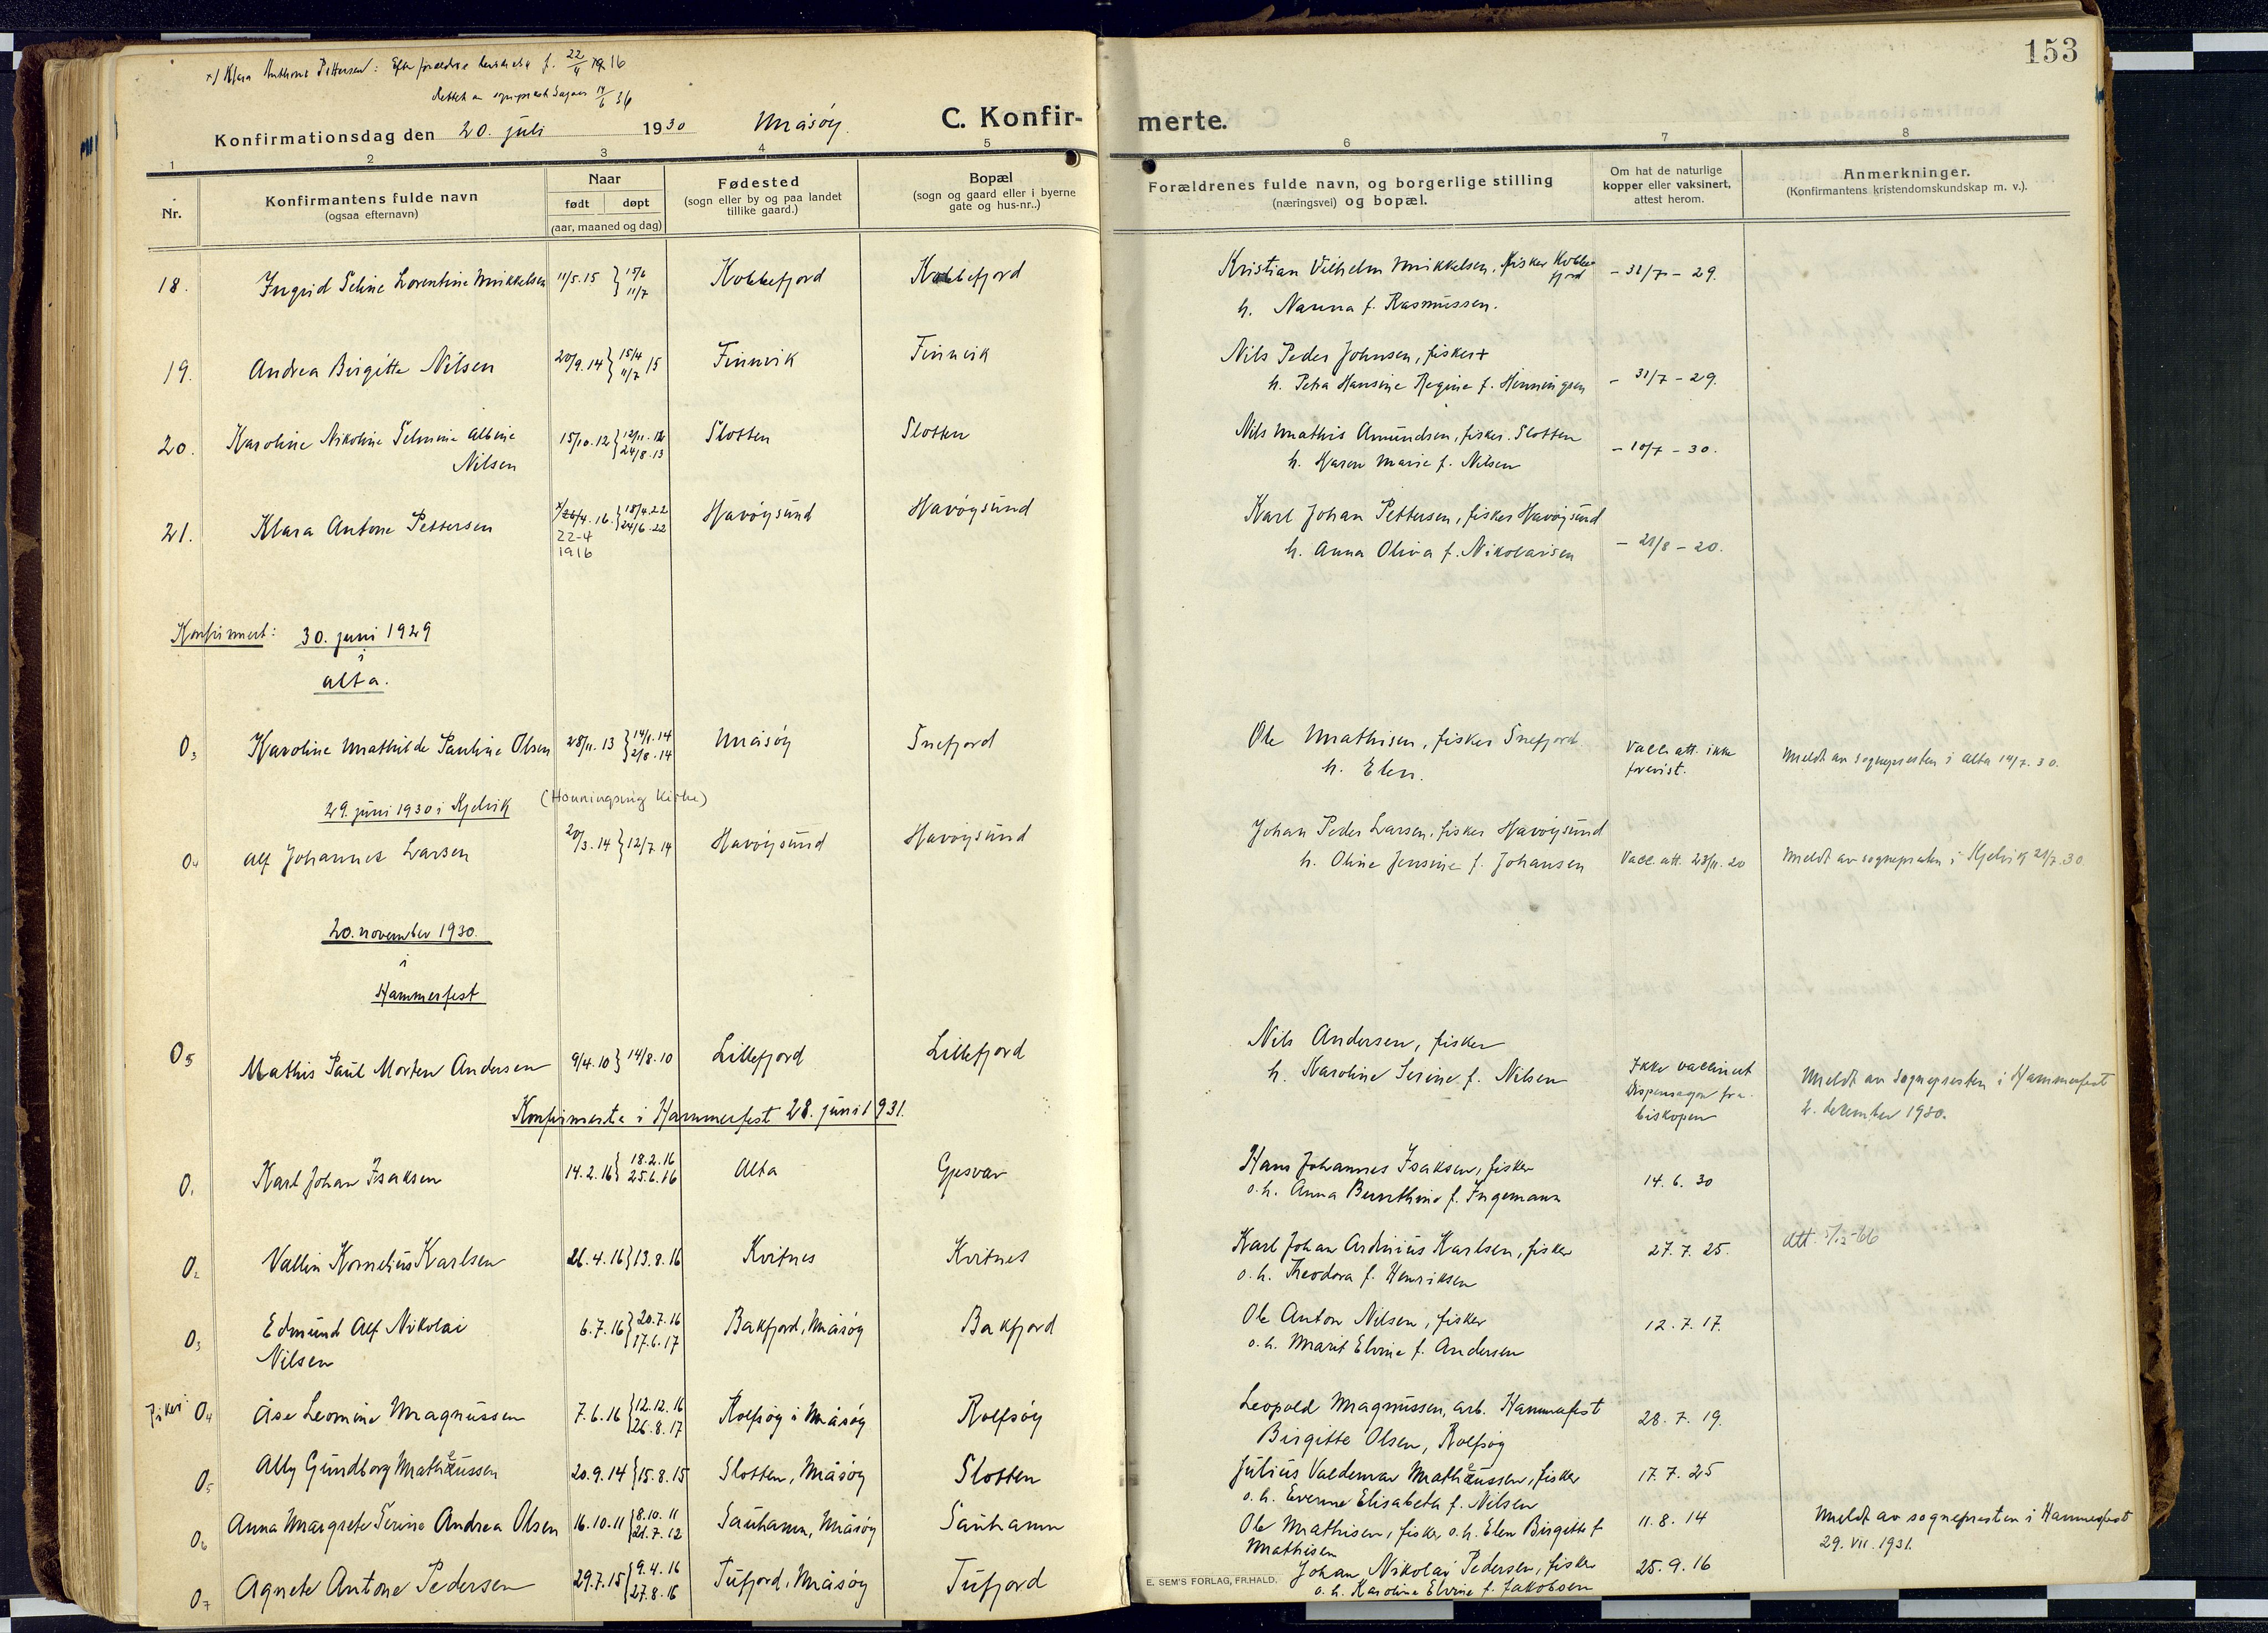 153
x/ Klara Anthone Pettersen: Efter foreldres f. 22/4 1916
Rettet av sogneprest 19/6 36
Konfirmationsdag den 20. juli 1930 Måsøy. C. Konfir- merte.
1 2 3 4 5 6 7 8
Nr.
Konfirmantens fulde navn
(ogsaa efternavn)
Naar
født døpt
(aar, maaned og dag)
Fødested
(sogn eller by og paa landet
tillike gaard.)
Bopæl
(sogn og gaard eller i byerne
gate og hus-nr..)
Forældrenes fulde navn, og borgerlige stilling
(næringsvei) og bopæl.
Om hat de naturlige
kopper eller vaksinert,
attest herom.
Anmerkninger.
(Konfirmantens kristendomskundskap m. v.).
18. Ingrid Seline Lorentine Mikkelsen 11/5.15 } 15/6 11/7 Kobbefjord Kobbefjord
Kristian Vilhelm Mikkelsen, fisker Kobbefjord - 31/7 - 29.
h. Nanna f. Rasmussen.
19. Andrea Birgitte Nilsen 20/9.14 } 15/4 11/7 15 Finnvik Finnvik
Nils Peder Johnsen, fisker +
h. Petra Hansine Regine f. Henningsen - 31/7 - 29.
20. Karoline Nikoline Selmine Albine
Nilsen 15/10.12 } 12/11.12 24/8.13 Slotten Slotten
Nils Mathis Amundsen, fisker. Slotten - 10/7 - 30.
h. Karen Marie f. Nilsen
21. Klara Antone Pettersen 26/4.16. } 18/4.22 24/6.22 Havøysund Havøysund
22-4
1916
Karl Johan Pettersen, fisker Havøysund
h. Anna Oliva f. Nikolaisen - 21/8 - 20.
Konfirmert: 30. juni 1929
i
Alta.
03 Karoline Mathilde Pauline Olsen 28/11.13 } 14/1.14 2/8.14 Måsøy Snefjord
Ole Mathisen, fisker Snefjord
h. Elen.
Vacc. att. ikke
forevist.
Meldt av sognepresten i Alta 14/7.30.
29. juni 1930 i Kjelvik (Honningsvåg kirke)
04 Alf Johannes Larsen 20/3.14 } 12/7.14 Havøysund Havøysund
Johan Peder Larsen, fisker Havøysund
h. Oline Jensine f. Johansen Vacc. att. 23/11.20 Meldt av sognepresten i Kjelvik 21/7.30
20. november 1930.
i
Hammerfest
05 Mathis Paul Morten Andersen 9/4.10 } 14/8.10 Lillefjord Lillefjord
Nils Andersen, fisker
h. Karoline Serine f. Nilsen
Ikke vaccinert
Dispensasjon fra
biskopen
Meldt av sognepresten i Hammerfest
2. desember 1930.
Konfirmerte i Hammerfest 28. juni 1931.
01 Karl Johan Isaksen 14.2.16 } 18.2.16 25.6.16 Alta Gjesvær
Hans Johannes Isaksen, fisker
o.h. Anna Bernthine f. Ingemann 14.6.30
02 Vallin Kornelius Karlsen 26.4.16 } 13.8.16 Kvitnes Kvitnes
Karl Johan Ardinius Karlsen, fisker 27.7.25. Att.
o.h. Theodora f. Henriksen
03 Edmund Alf Nikolai
Nilsen 6.7.16 } 20.7.16 17.6.17 Bakfjord, Måsøy Bakfjord
Ole Anton Nilsen, fisker 12.7.17.
o.h. Marit Elvine f. Andersen
04 Åse Leonine Magnussen 7.6.16 } 12.12.16 26.8.17 Rolfsøy i Måsøy Rolfsøy
Leopold Magnussen, arb. Hammerfest 28.7.19.
Birgitte Olsen, Rolfsøy
05 Ally Gundborg Matheussen 20.9.14 } 15.8.15 Slotten, Måsøy Slotten
Julius Valdemar Matheussen, fisker 17.7.25
o.h. Evenne Elisabeta f. Nilsen
06 Anna Margrete Serine Andrea Olsen 16.10.11 } 8.10.11 21.7.12 Sauhamn, Måsøy Sauhamn
Ole Mathisen, fisker o.h. Elen Birgitte f. 11.8.14 Meldt av sognepresten i Hammerfest
Mathisen 29.VII.1931.
07 Agnete Antone Pedersen 29.7.15 } 9.4.16 27.8.16 Tufjord, Måsøy Tufjord
Johan Nikolai Pedersen, fisker 25.9.16
o.h. Karoline Elvine f. Jakobsen
E. SEM'S FORLAG, FR.HALD.